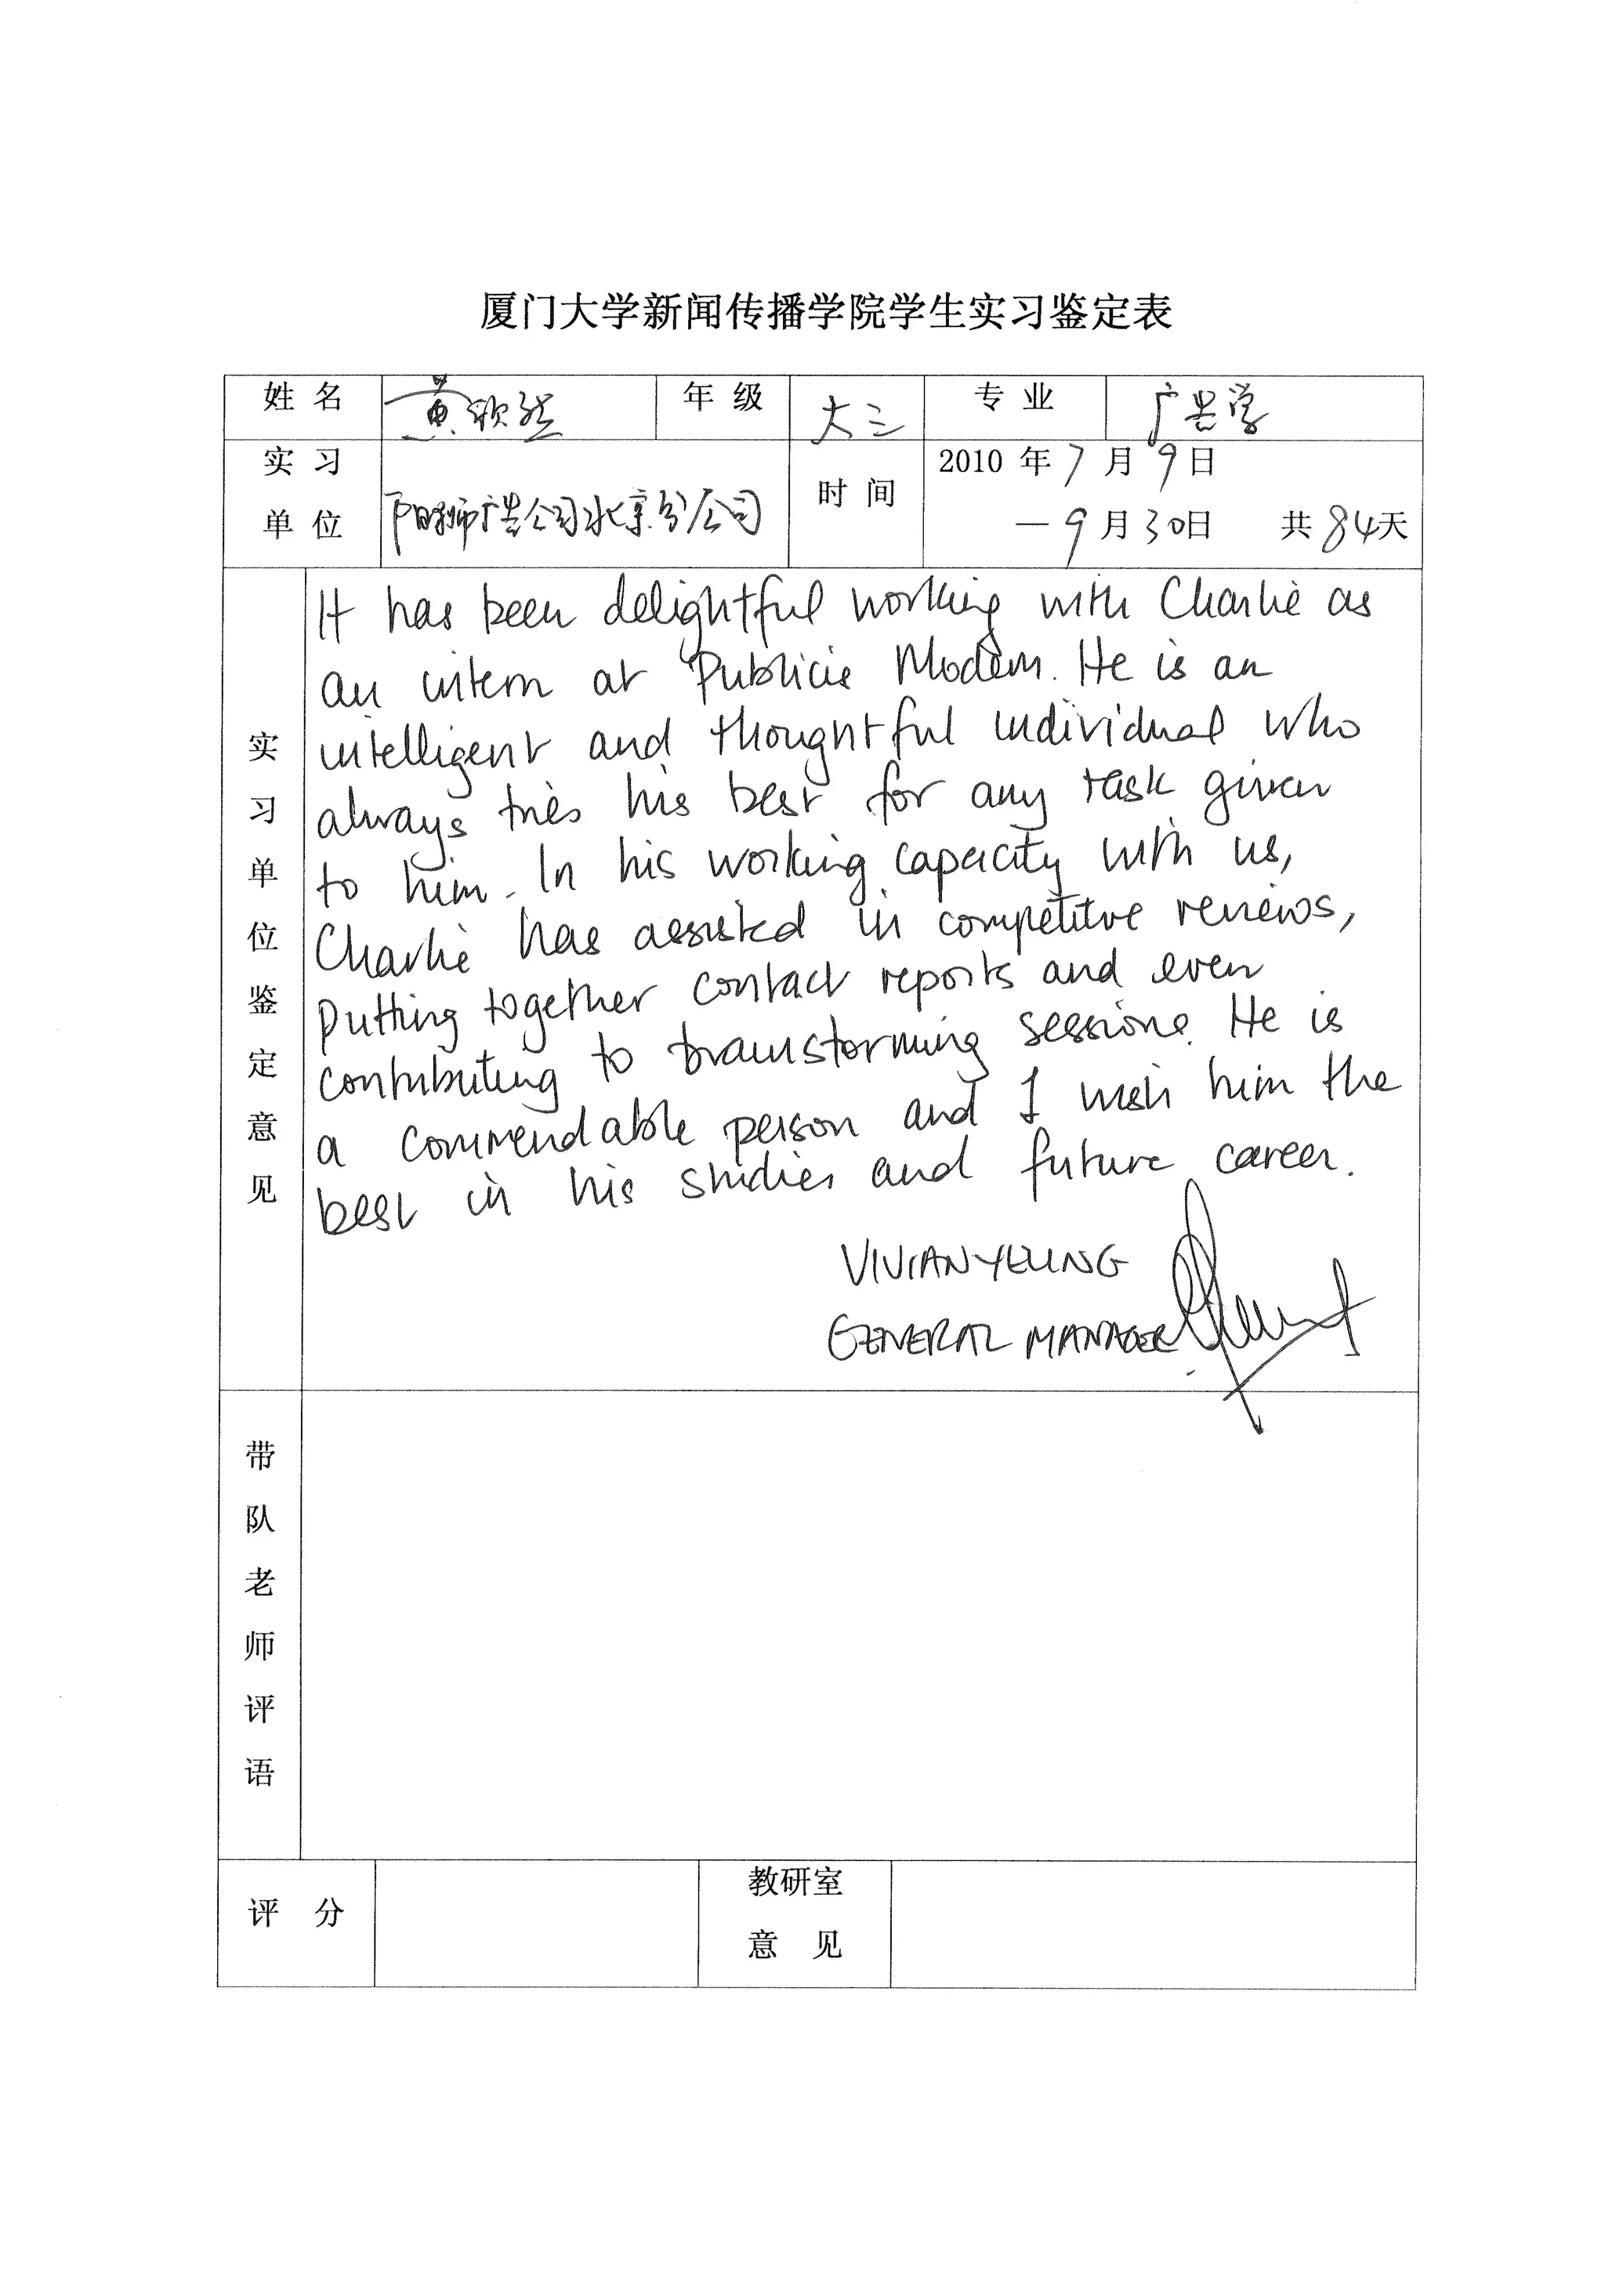 厦门大学新闻传播学院学生实习鉴定表
姓 名 黄欣然 年 级 大三 专 业 广告学
实 习 单 位 阳狮广告公司北京分公司 时 间 2010 年 7 月 9 日
— 9 月 30 日 共 84 天
实习单位鉴定意见
It has been delightful working with Charlie as
an intern at Publicis Modem. He is an
intelligent and thoughtful individual who
always tries his best for any task given
to him. In his working capacity with us,
Charlie has assisted in competitive reviews,
putting together contact reports and even
contributing to brainstorming sessions. He is
a commendable person and I wish him the
best in his studies and future career.
VIVIAN YEUNG
GENERAL MANAGER
带队老师评语
评 分 教研室
意 见